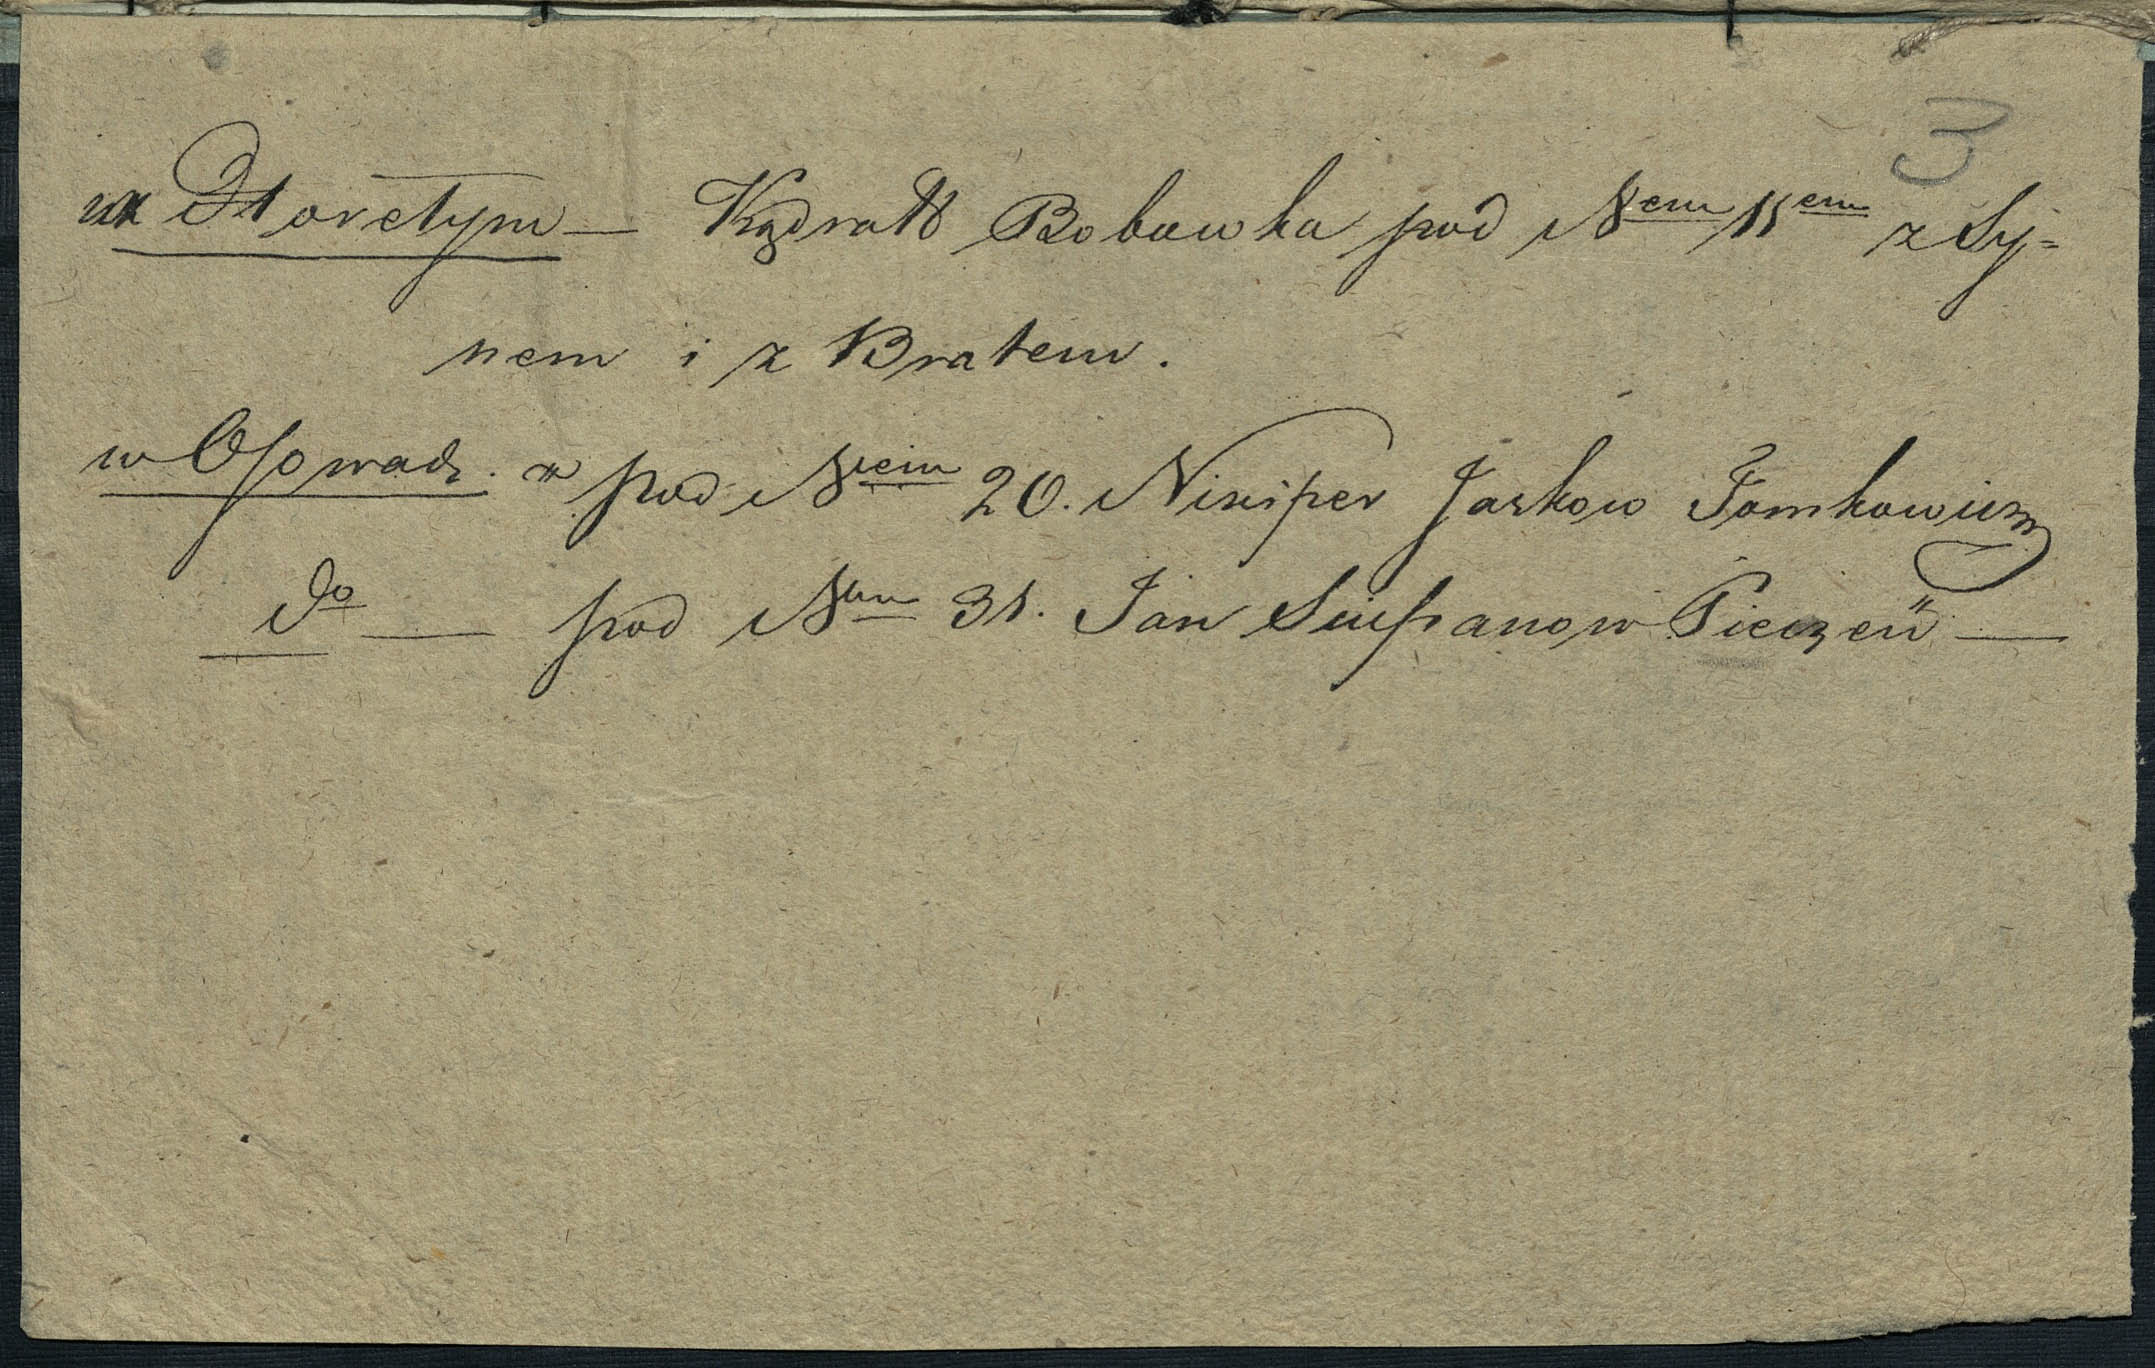 3
w Storetym — Kądratt Bobowka pod Nem 11em z Sy=
nem i z Bratem.
w Ossowach. pod Nem 20. Niciper Jaskow Tomkowicz
do — pod Nem 31. Jan Sciepanow Pieczeń —